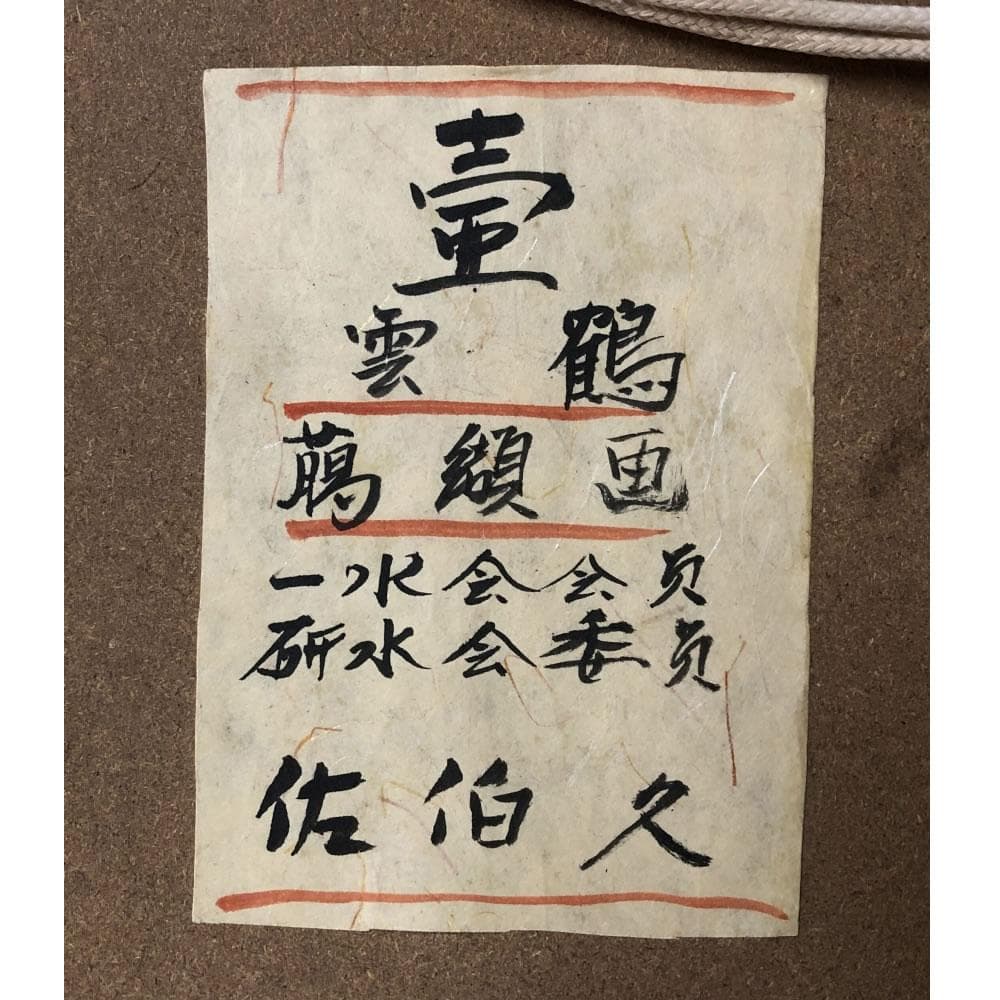 壷
雲 鶴
﨟 纈 画
一水会会員
研水会委員
佐 伯 久